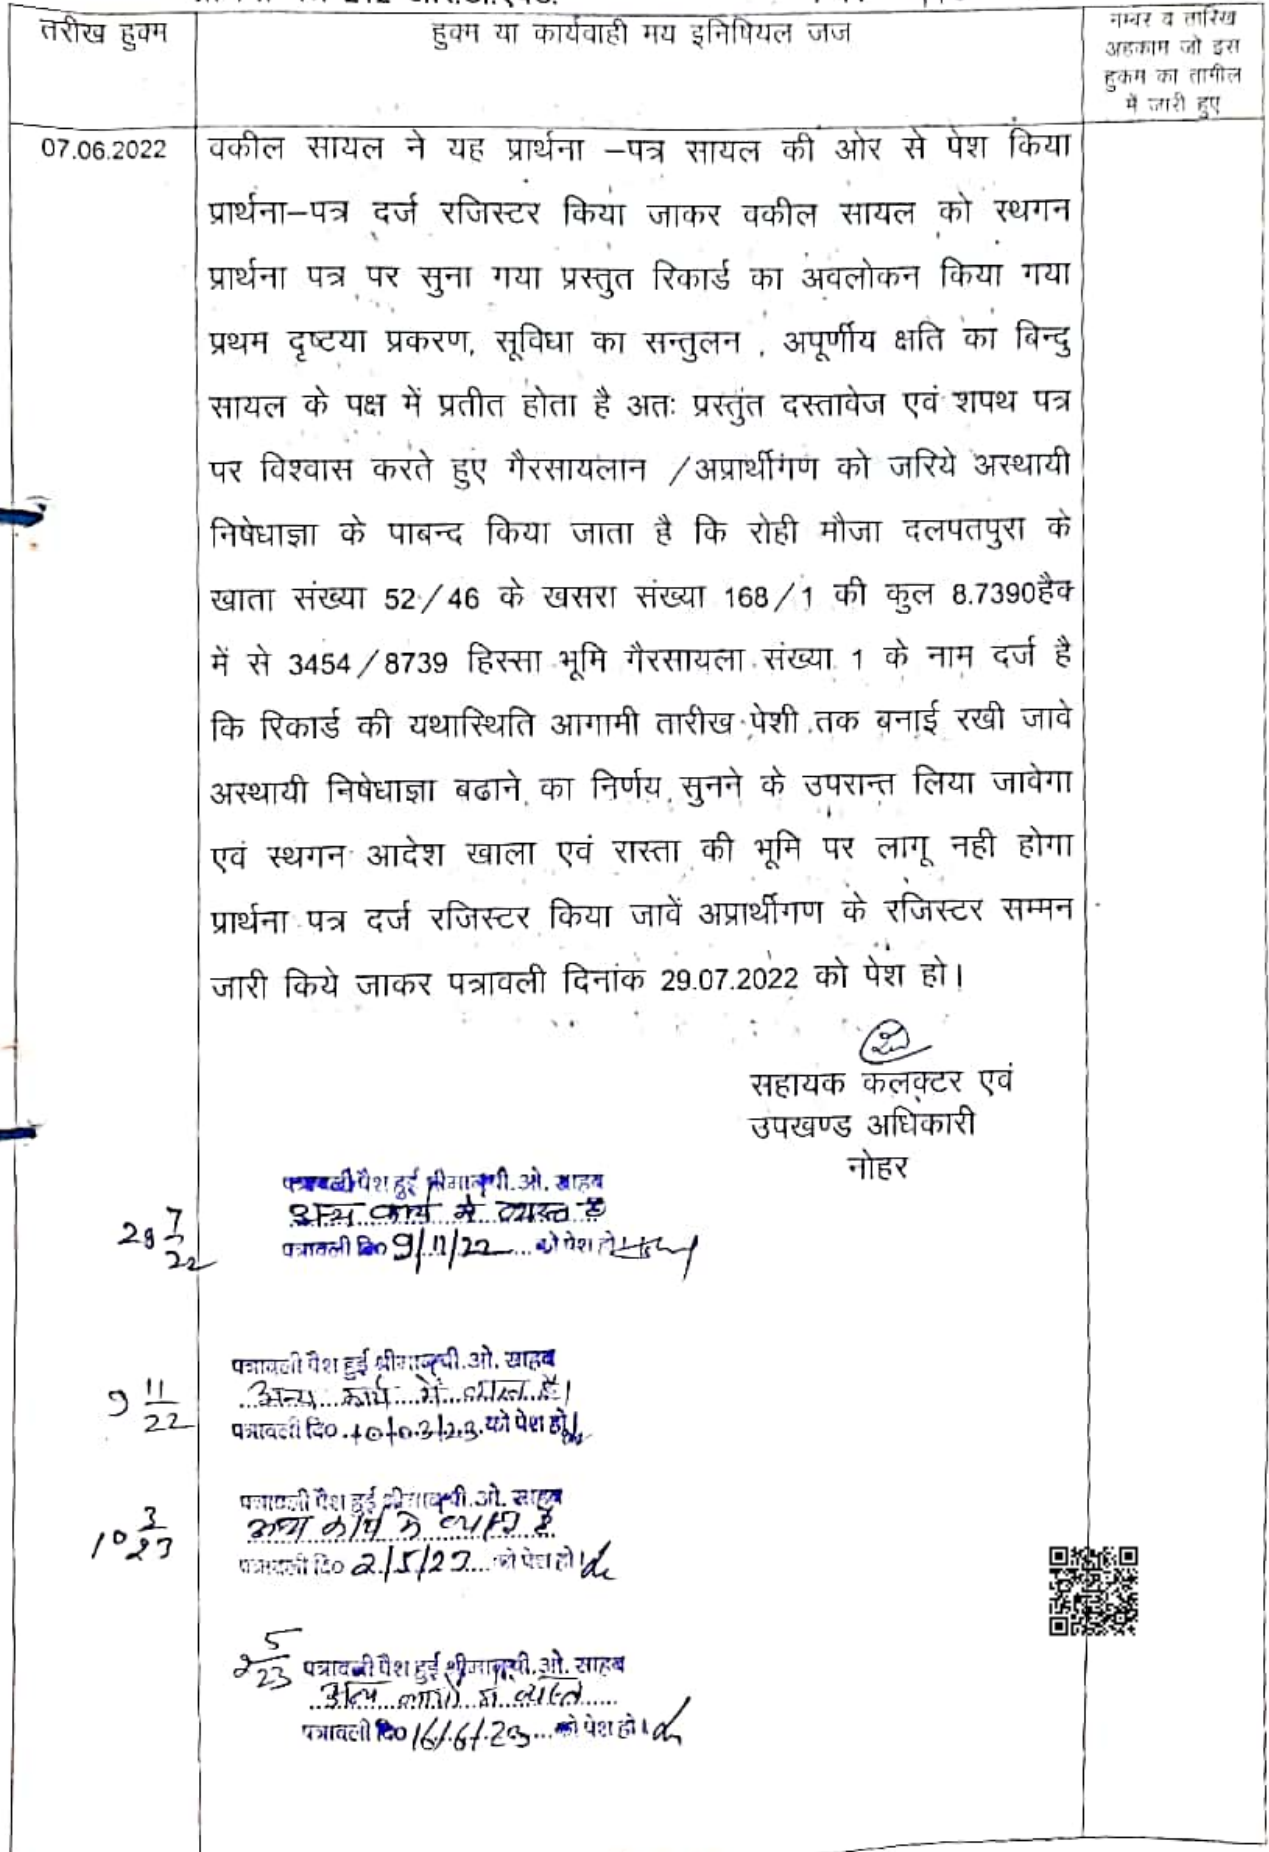 तरीख हुक्म
हुक्म या कार्यवाही मय इनिषियल जज
नम्बर व तारिख
अहकाम जो इस
हुकम का तामील
में जारी हुए
07.06.2022
वकील सायल ने यह प्रार्थना –पत्र सायल की ओर से पेश किया
प्रार्थना–पत्र दर्ज रजिस्टर किया जाकर वकील सायल को स्थगन
प्रार्थना पत्र पर सुना गया प्रस्तुत रिकार्ड का अवलोकन किया गया
प्रथम दृष्टया प्रकरण, सूविधा का सन्तुलन , अपूर्णीय क्षति का बिन्दु
सायल के पक्ष में प्रतीत होता है अतः प्रस्तुत दस्तावेज एवं शपथ पत्र
पर विश्वास करते हुए गैरसायलान /अप्रार्थीगण को जरिये अस्थायी
निषेधाज्ञा के पाबन्द किया जाता है कि रोही मौजा दलपतपुरा के
खाता संख्या 52/46 के खसरा संख्या 168/1 की कुल 8.7390हैक
में से 3454/8739 हिस्सा भूमि गैरसायला संख्या 1 के नाम दर्ज है
कि रिकार्ड की यथास्थिति आगामी तारीख पेशी तक बनाई रखी जावे
अस्थायी निषेधाज्ञा बढाने का निर्णय सुनने के उपरान्त लिया जावेगा
एवं स्थगन आदेश खाला एवं रास्ता की भूमि पर लागू नही होगा
प्रार्थना पत्र दर्ज रजिस्टर किया जावें अप्रार्थीगण के रजिस्टर सम्मन
जारी किये जाकर पत्रावली दिनांक 29.07.2022 को पेश हो।
सहायक कलक्टर एवं
उपखण्ड अधिकारी
नोहर
पत्रावली पैश हुई श्रीमान् पी.ओ. साहब
29 7/22
अन्य कार्य मे व्यस्त है
पत्रावली दि० 9/11/22 को पेश हो
पत्रावली पैश हुई श्रीमान् पी.ओ. साहब
9 11/22
अन्य कार्य में व्यस्त है।
पत्रावली दि० 10/03/23 को पेश हो।
पत्रावली पैश हुई श्रीमान् पी.ओ. साहब
10 3/23
अन्य कार्य मे व्यस्त है
पत्रावली दि० 2/5/23 को पेश हो।
2 5/23
पत्रावली पैश हुई श्रीमान् पी.ओ. साहब
अन्य कार्यो में व्यस्त
पत्रावली दि० 16/6/23 को पेश हो।